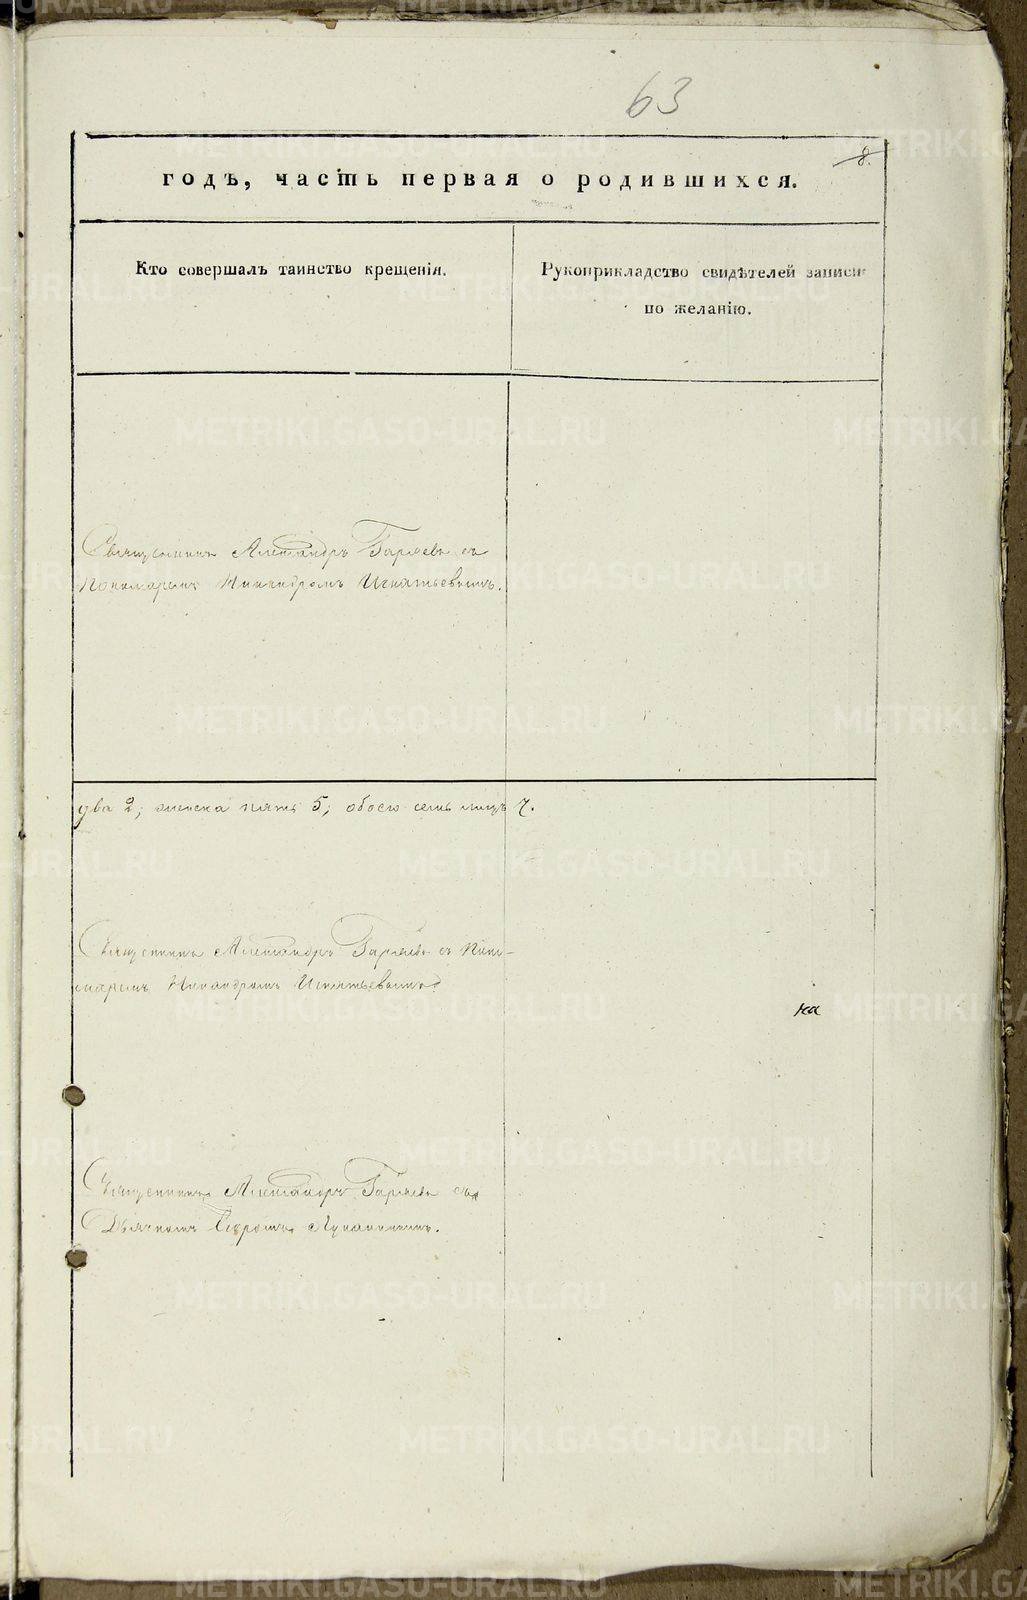 63
8.
годъ, часть первая о родившихся.
Кто совершалъ таинство крещенія.
Рукоприкладство свидѣтелей записи
по желанію.
Священникъ Александръ Гаряевъ съ
Пономаремъ Никандромъ Игнатьевымъ.
два 2; женска пять 5; обоего семь 7.
Священникъ Александръ Гаряевъ съ Поно-
маремъ Никандромъ Игнатьевымъ
ка
Священникъ Александръ Гаряевъ съ
Дьячкомъ Лукинымъ.
METRIKI.GASO-URAL.RU